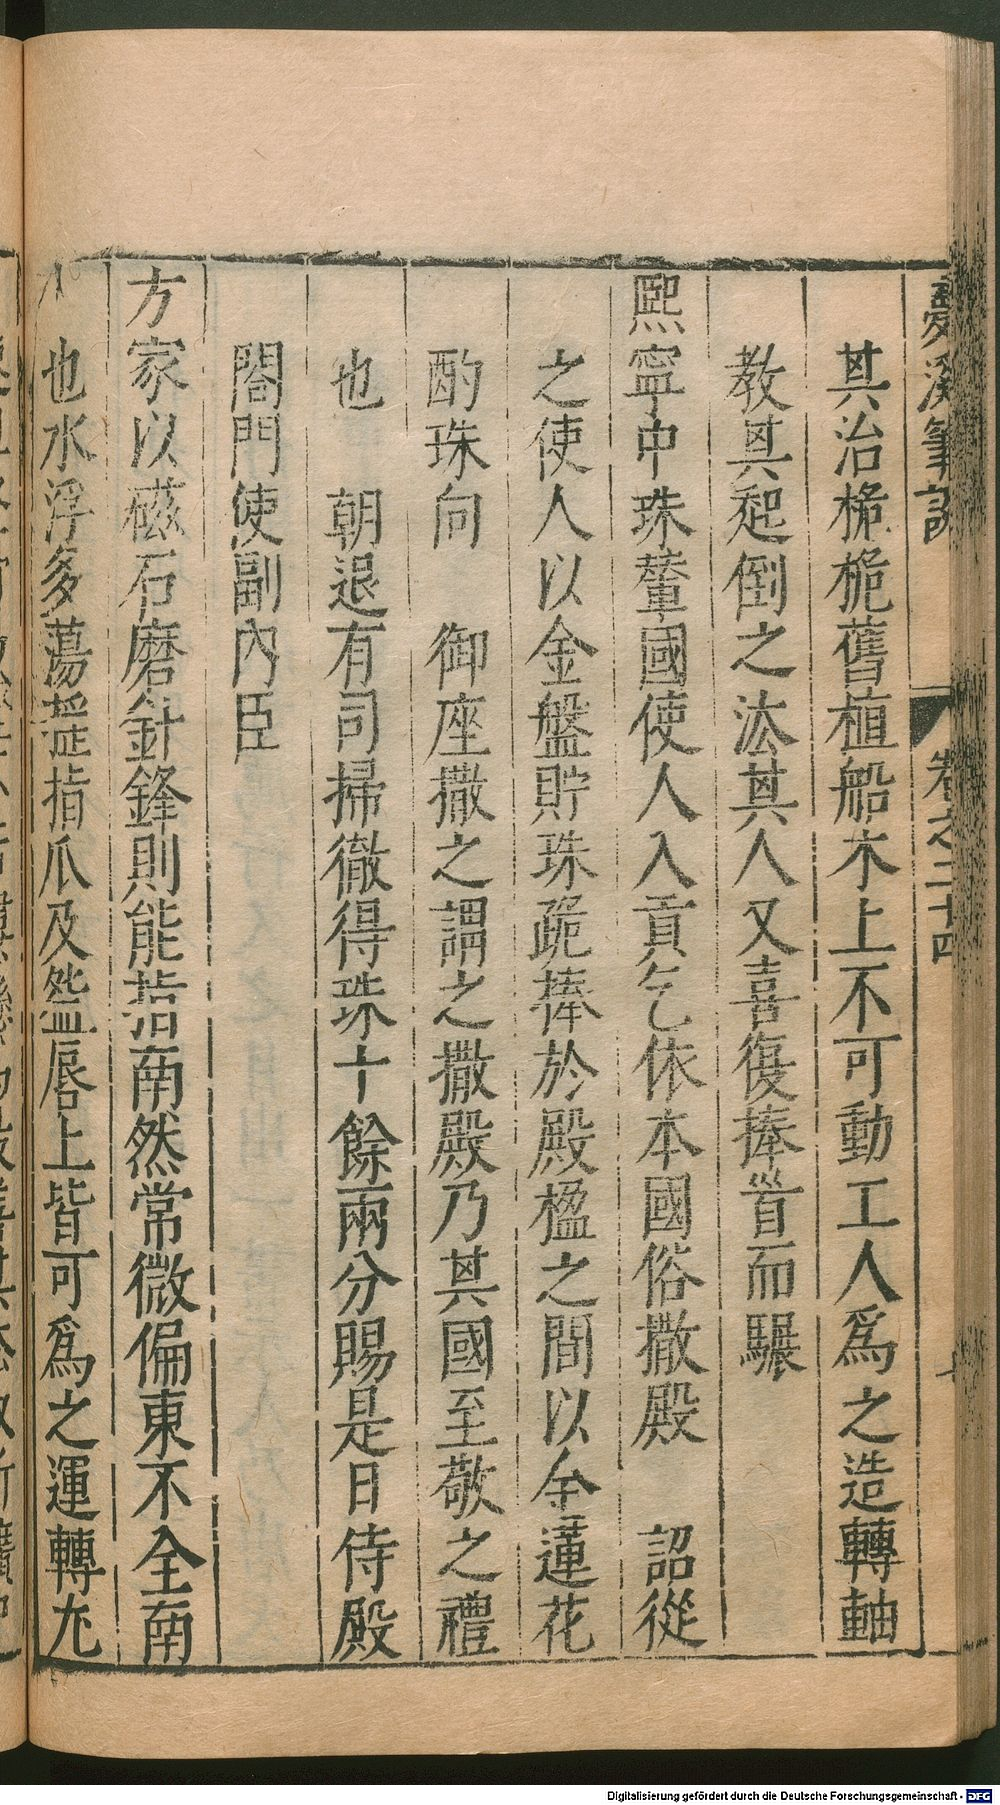 夢溪筆談 卷之二十四
其治桅桅舊植船木上不可動工人爲之造轉軸
教其起倒之法其人又喜復捧首而驟
熙寧中珠輦國使人入貢乞依本國俗撒殿 詔從
之使人以金盤貯珠跪捧於殿楹之間以金蓮花
酌珠向 御座撒之謂之撒殿乃其國至敬之禮
也 朝退有司掃徹得珠十餘兩分賜是日侍殿
閤門使副內臣
方家以磁石磨針鋒則能指南然常微偏東不全南
也水浮多蕩搖指爪及盌唇上皆可爲之運轉尤
Digitalisierung gefördert durch die Deutsche Forschungsgemeinschaft - DFG